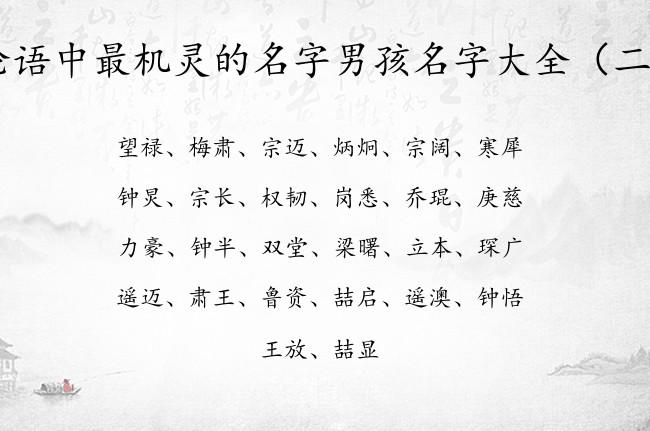 论语中最机灵的名字男孩名字大全（二
望禄、梅肃、宗迈、炳炯、宗阔、寒犀
钟炅、宗长、权韧、岗悉、乔琨、庚慈
力豪、钟半、双堂、梁曙、立本、琛广
遥迈、肃王、鲁资、喆启、遥澳、钟悟
王放、喆显